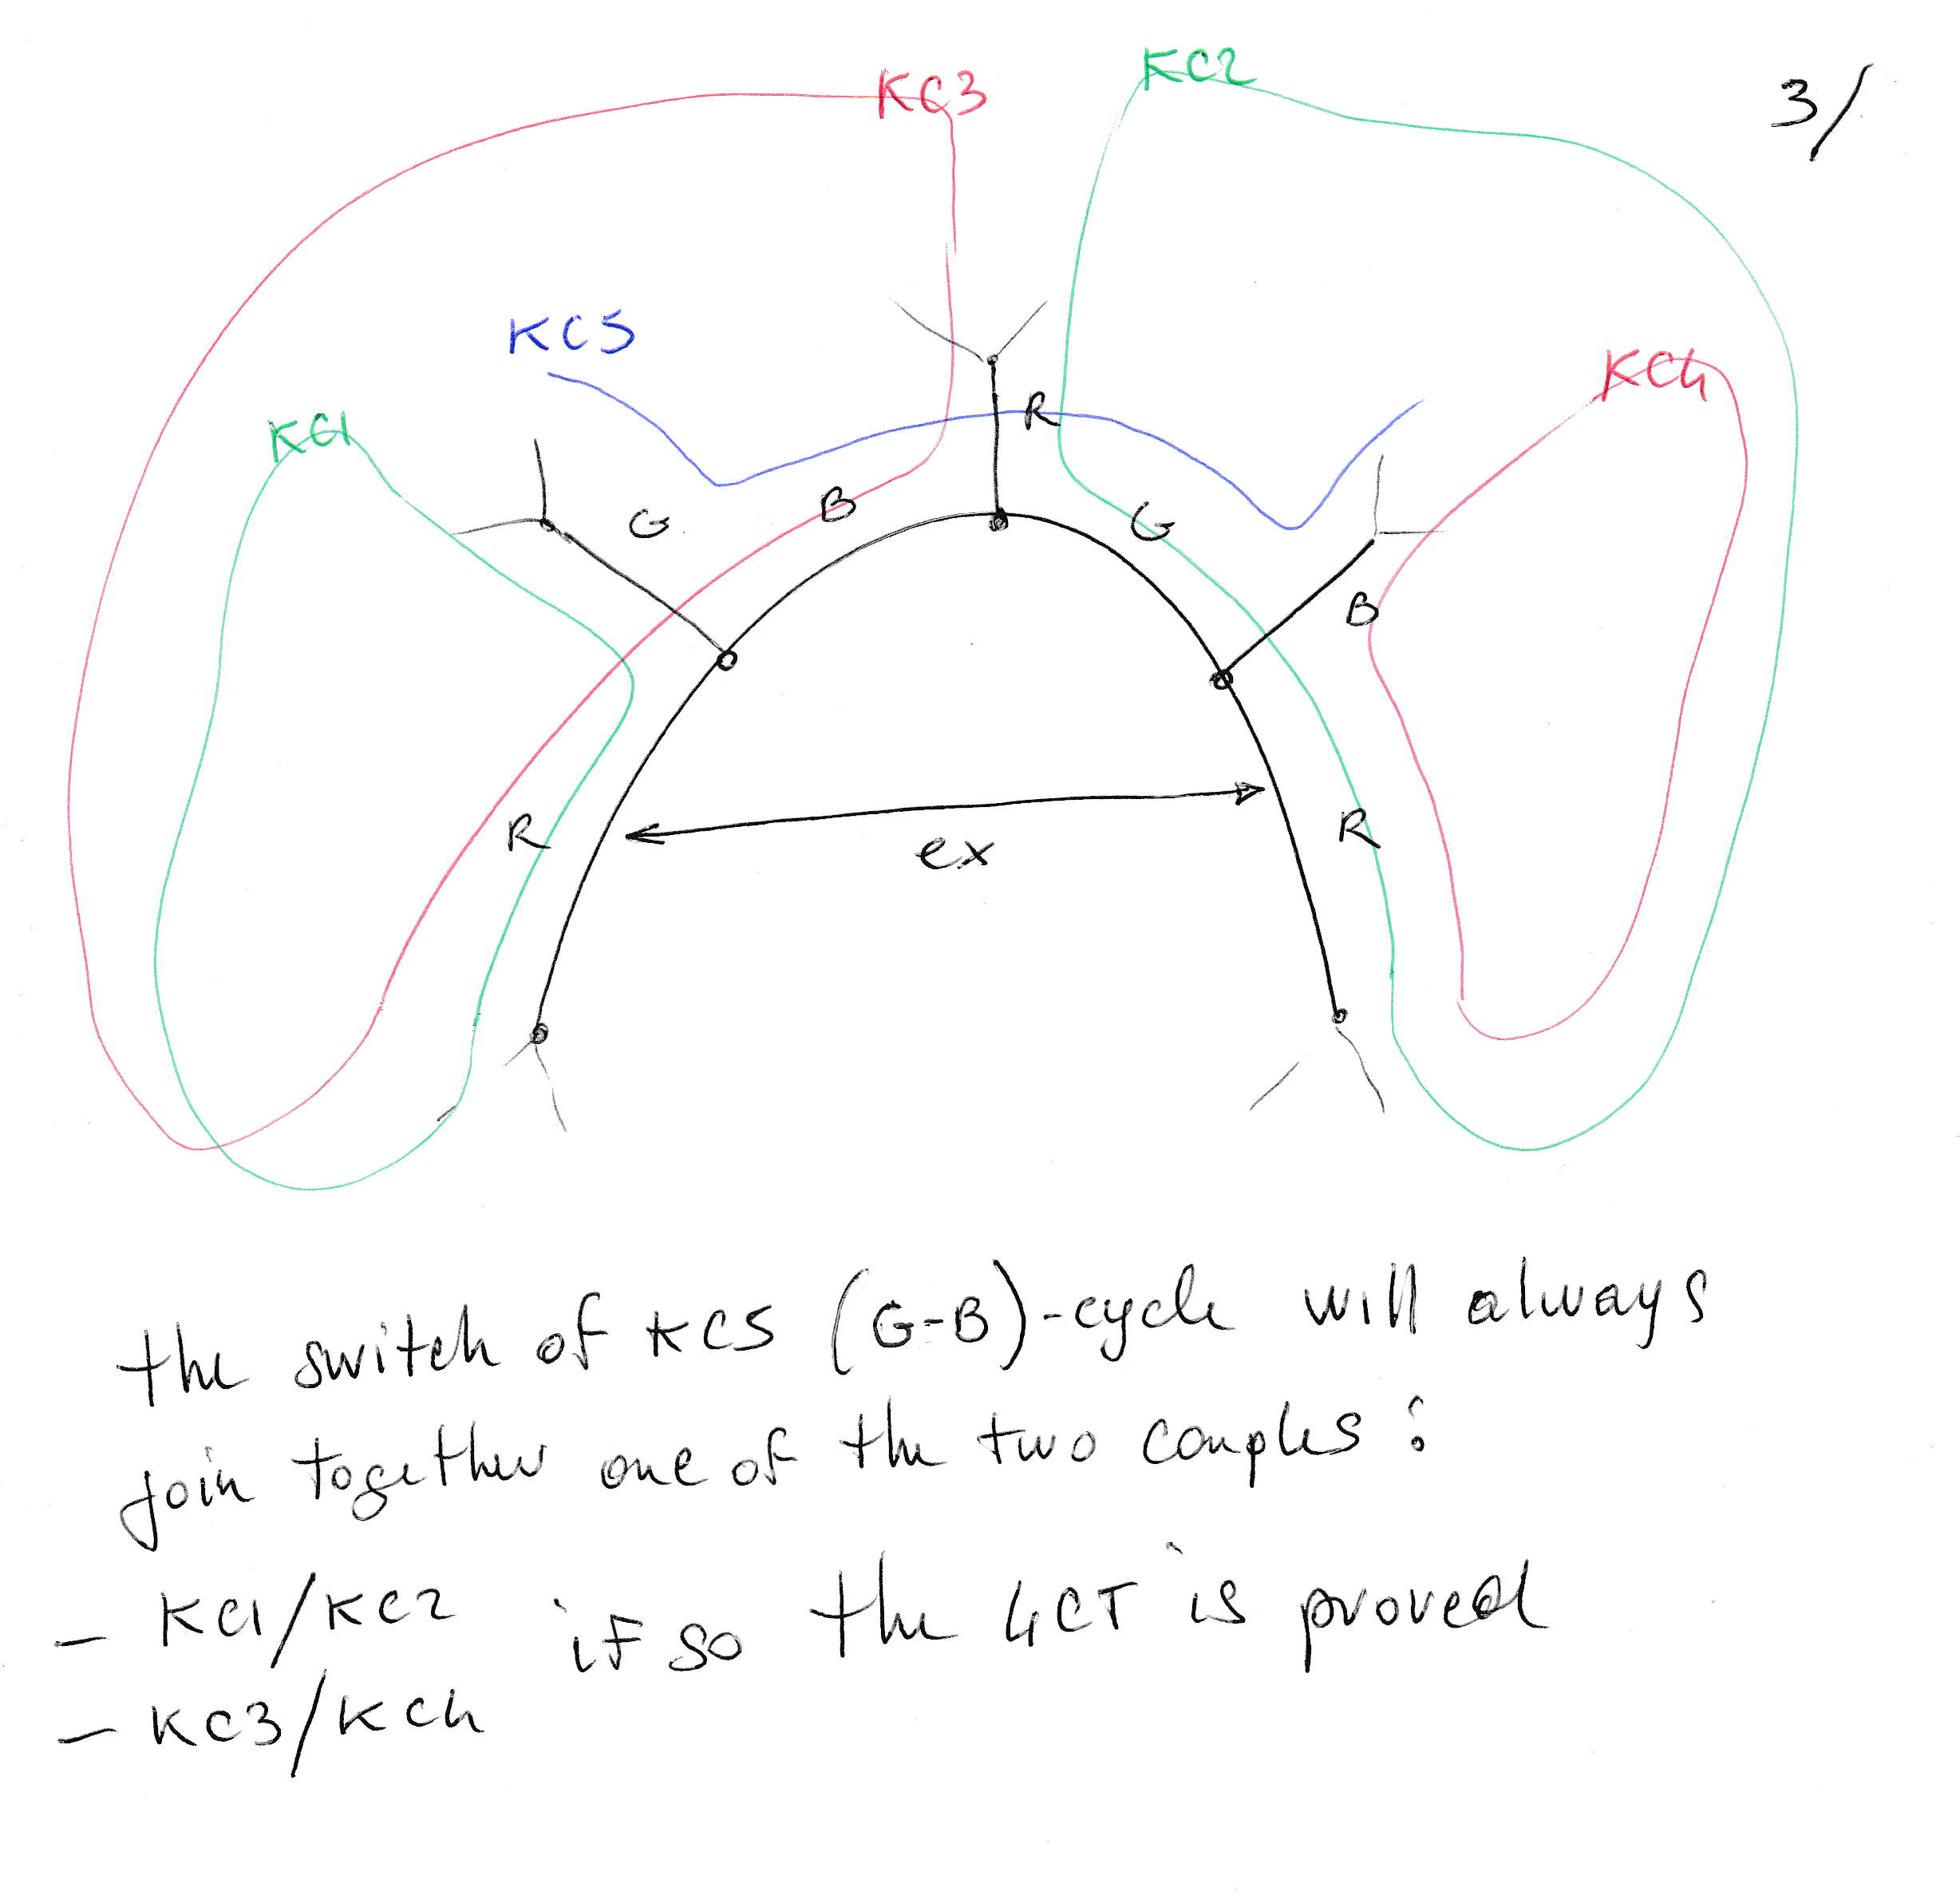 KC3
KC2
3/
KC5
KC4
KC1
R
G
B
G
B
R
R
ex
the switch of KC5 (G-B)-cycle will always
join together one of the two couples:
- KC1/KC2 if so the 4CT is proved
- KC3/KC4